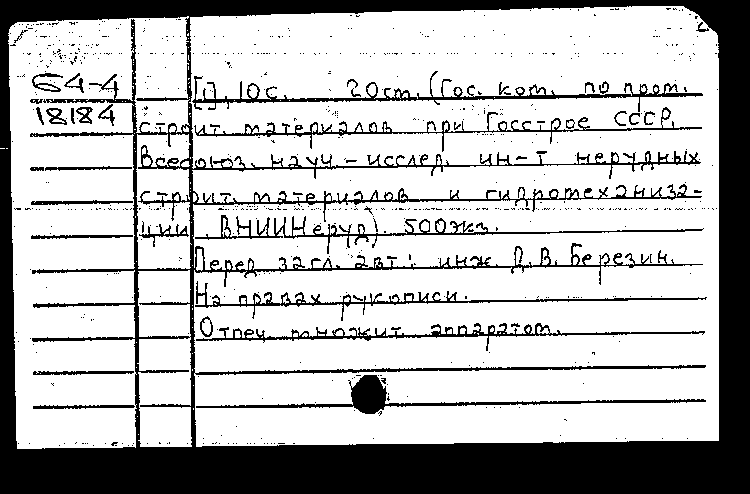 64-4 [1], 10 с. 20 см. (Гос. ком. по пром.
18184 строит. материалов при Госстрое СССР.
Всесоюз. науч.-исслед. ин-т нерудных
строит. материалов и гидромеханиза-
ции. ВНИИНеруд). 500 экз.
Перед загл. авт: инж. Д. В. Березин.
На правах рукописи.
Отпеч множит аппаратом.